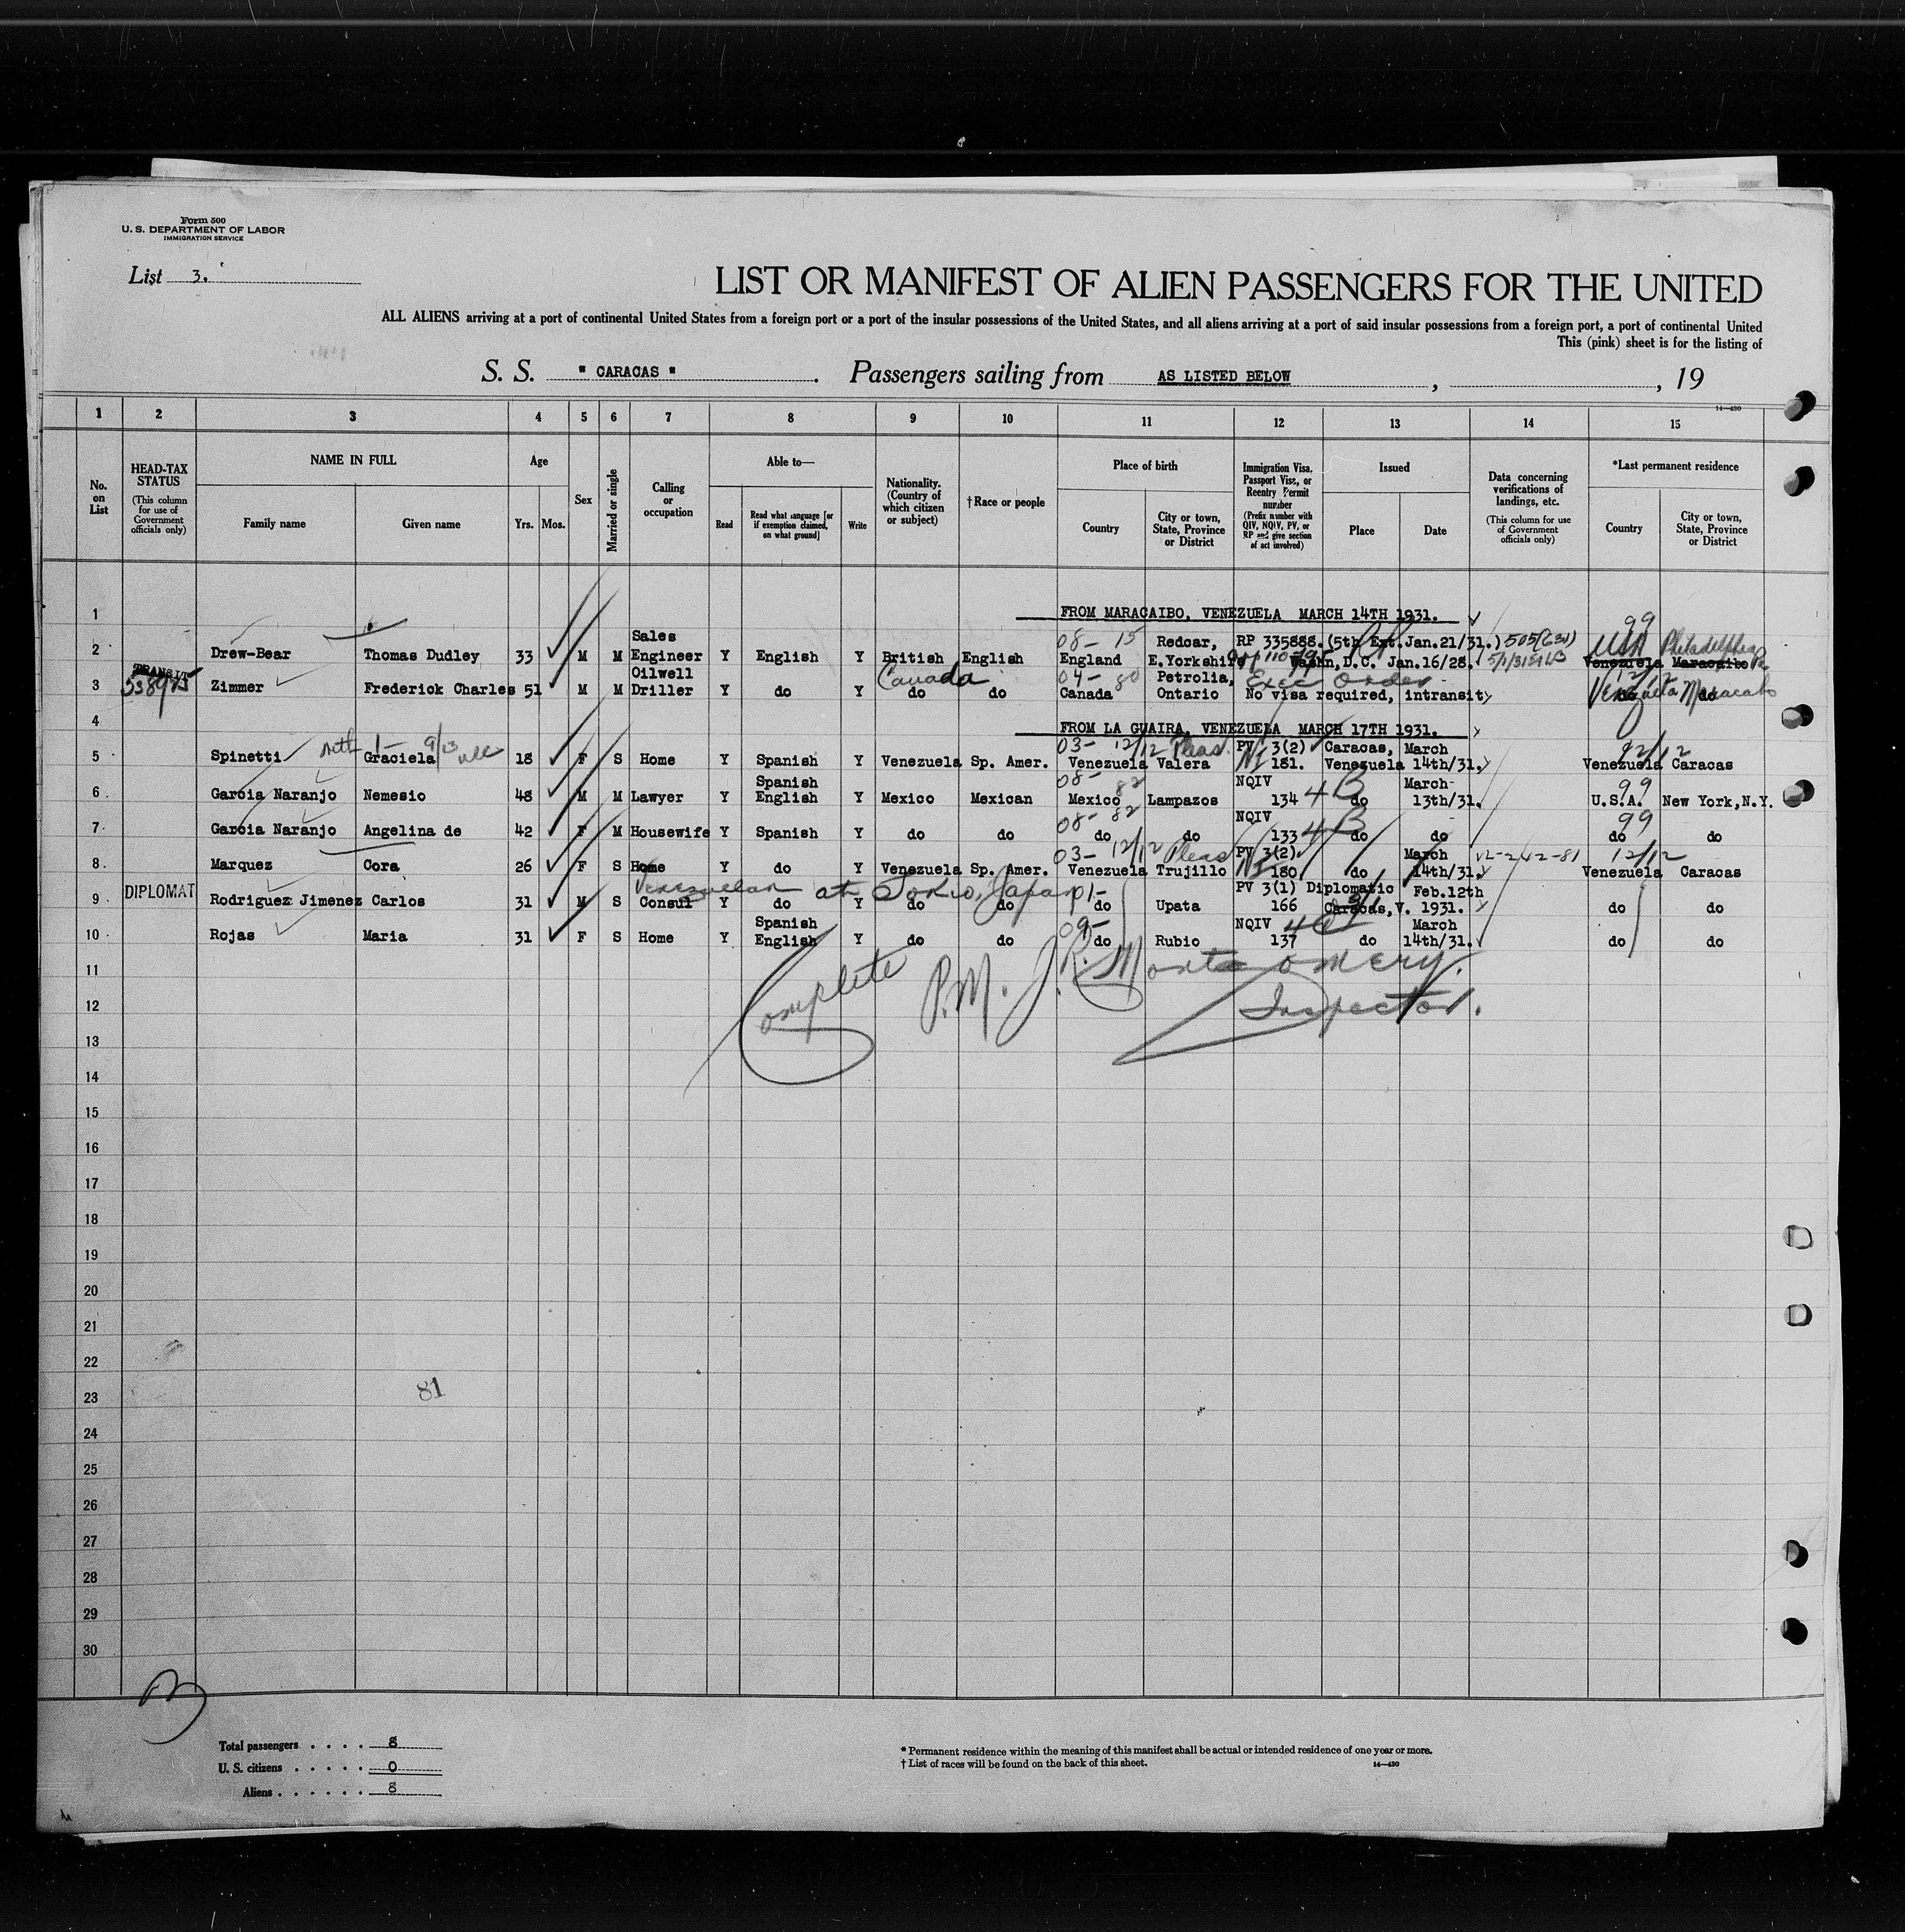 Form 500
U. S. DEPARTMENT OF LABOR
IMMIGRATION SERVICE
List 3.
LIST OR MANIFEST OF ALIEN PASSENGERS FOR THE UNITED
ALL ALIENS arriving at a port of continental United States from a foreign port or a port of the insular possessions of the United States, and all aliens arriving at a port of said insular possessions from a foreign port, a port of continental United
This (pink) sheet is for the listing of
S. S. " CARACAS " . Passengers sailing from AS LISTED BELOW , , 19
14—430
1 2 3 4 5 6 7 8 9 10 11 12 13 14 15
No. on List
HEAD-TAX STATUS (This column for use of Government officials only)
NAME IN FULL Family name Given name
Age Yrs. Mos.
Sex
Married or single
Calling or occupation
Able to— Read Read what language [or if exemption claimed, on what ground] Write
Nationality. (Country of which citizen or subject)
† Race or people
Place of birth Country City or town, State, Province or District
Immigration Visa, Passport Visa, or Reentry Permit number (Prefix number with QIV, NQIV, PV, or RP and give section of act involved)
Issued Place Date
Data concerning verifications of landings, etc. (This column for use of Government officials only)
*Last permanent residence Country City or town, State, Province or District
1 FROM MARACAIBO, VENEZUELA MARCH 14TH 1931.
99
Sales 08- 15 Redcar, RP 335888. (5th Ext. Jan.21/31.) 505 USA Philadelphia Pa
2 Drew-Bear Thomas Dudley 33 M M Engineer Y English Y British English England E.Yorkshire Washn, D.C. Jan.16/28. Venezuela Maracaibo
TRANSIT Oilwell Canada 04- 80 Petrolia, Exec Order 12/12
538975 3 Zimmer Frederick Charles 51 M M Driller Y do Y do do Canada Ontario No visa required, intransit Venezuela do Maracaibo do
4 FROM LA GUAIRA, VENEZUELA MARCH 17TH 1931.
1- 9/13 03- 12/12 Pleas. PV 3(2) Caracas, March 12/12
5 Spinetti Graciela 18 F S Home Y Spanish Y Venezuela Sp. Amer. Venezuela Valera 181. Venezuela 14th/31. Venezuela Caracas
Spanish 08- 82 NQIV 4B March 99
6 Garcia Naranjo Nemesio 48 M M Lawyer Y English Y Mexico Mexican Mexico Lampazos 134 do 13th/31. U.S.A. New York,N.Y.
08- 82 NQIV 4B 99
7 Garcia Naranjo Angelina de 42 F M Housewife Y Spanish Y do do do do 133 do do do do
03- 12/12 Pleas PV 3(2). March 12/12
8 Marquez Cora 26 F S Home Y do Y Venezuela Sp. Amer. Venezuela Trujillo 180 do 14th/31. Venezuela Caracas
DIPLOMAT Venezuelan at Tokio, Japan 01- PV 3(1) Diplomatic Feb.12th
9 Rodriguez Jimenez Carlos 31 M S Consul Y do Y do do do Upata 166 Caracas,V. 1931. do do
Spanish 09- NQIV March
10 Rojas Maria 31 F S Home Y English Y do do do Rubio 137 do 14th/31. do do
11 Complete P.M. J.R. Montgomery.
12 Inspector.
13
14
15
16
17
18
19
20
21
22
23 81
24
25
26
27
28
29
30
Total passengers . . . . 8
U. S. citizens . . . . . 0
Aliens . . . . . . 8
* Permanent residence within the meaning of this manifest shall be actual or intended residence of one year or more.
† List of races will be found on the back of this sheet. 14—430